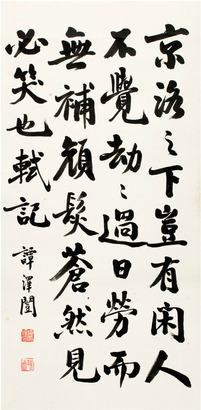 京洛之下豈有閑人
不覺劫〻過日勞而
無補頒髮蒼然見
必笑也軾記
譚澤闓